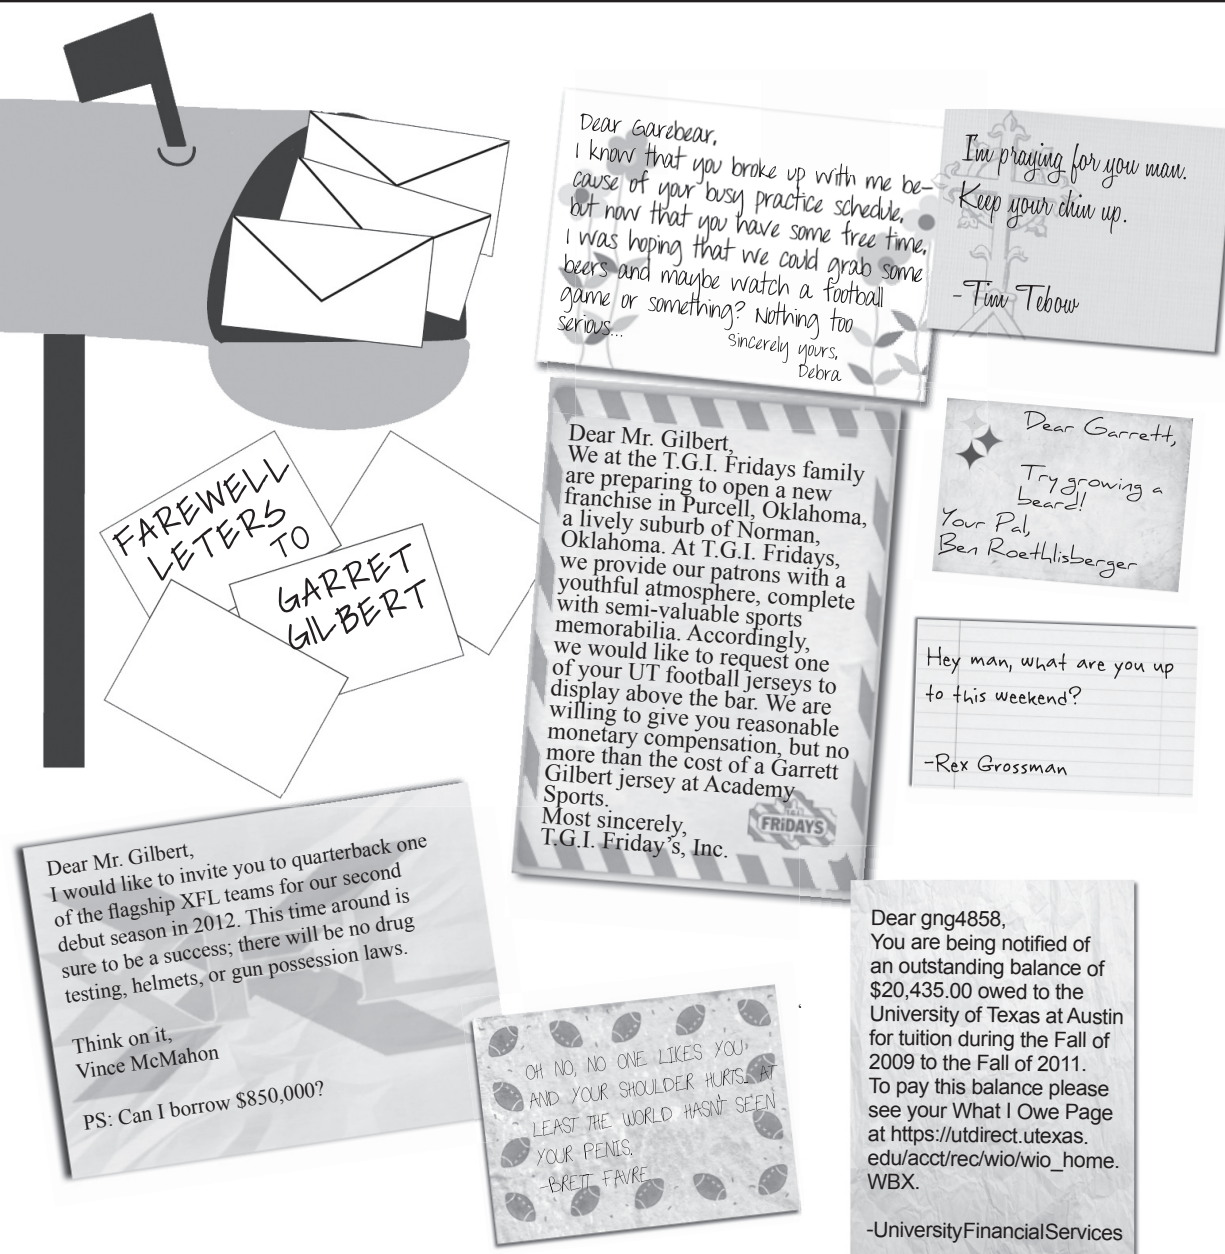 FAREWELL
LETERS
TO
GARRET
GILBERT
Dear Garebear,
I know that you broke up with me be-
cause of your busy practice schedule,
but now that you have some free time,
I was hoping that we could grab some
beers and maybe watch a football
game or something? Nothing too
serious...
Sincerely yours,
Debra
I'm praying for you man.
Keep your chin up.
-Tim Tebow
Dear Mr. Gilbert,
We at the T.G.I. Fridays family
are preparing to open a new
franchise in Purcell, Oklahoma,
a lively suburb of Norman,
Oklahoma. At T.G.I. Fridays,
we provide our patrons with a
youthful atmosphere, complete
with semi-valuable sports
memorabilia. Accordingly,
we would like to request one
of your UT football jerseys to
display above the bar. We are
willing to give you reasonable
monetary compensation, but no
more than the cost of a Garrett
Gilbert jersey at Academy
Sports.
Most sincerely,
T.G.I. Friday's, Inc.
FRiDAYS
Dear Garrett,
Try growing a
beard!
Your Pal,
Ben Roethlisberger
Hey man, what are you up
to this weekend?
-Rex Grossman
Dear Mr. Gilbert,
I would like to invite you to quarterback one
of the flagship XFL teams for our second
debut season in 2012. This time around is
sure to be a success; there will be no drug
testing, helmets, or gun possession laws.
Think on it,
Vince McMahon
PS: Can I borrow $850,000?
OH NO, NO ONE LIKES YOU
AND YOUR SHOULDER HURTS. AT
LEAST THE WORLD HASN'T SEEN
YOUR PENIS.
-BRETT FAVRE
Dear gng4858,
You are being notified of
an outstanding balance of
$20,435.00 owed to the
University of Texas at Austin
for tuition during the Fall of
2009 to the Fall of 2011.
To pay this balance please
see your What I Owe Page
at https://utdirect.utexas.
edu/acct/rec/wio/wio_home.
WBX.
-UniversityFinancialServices